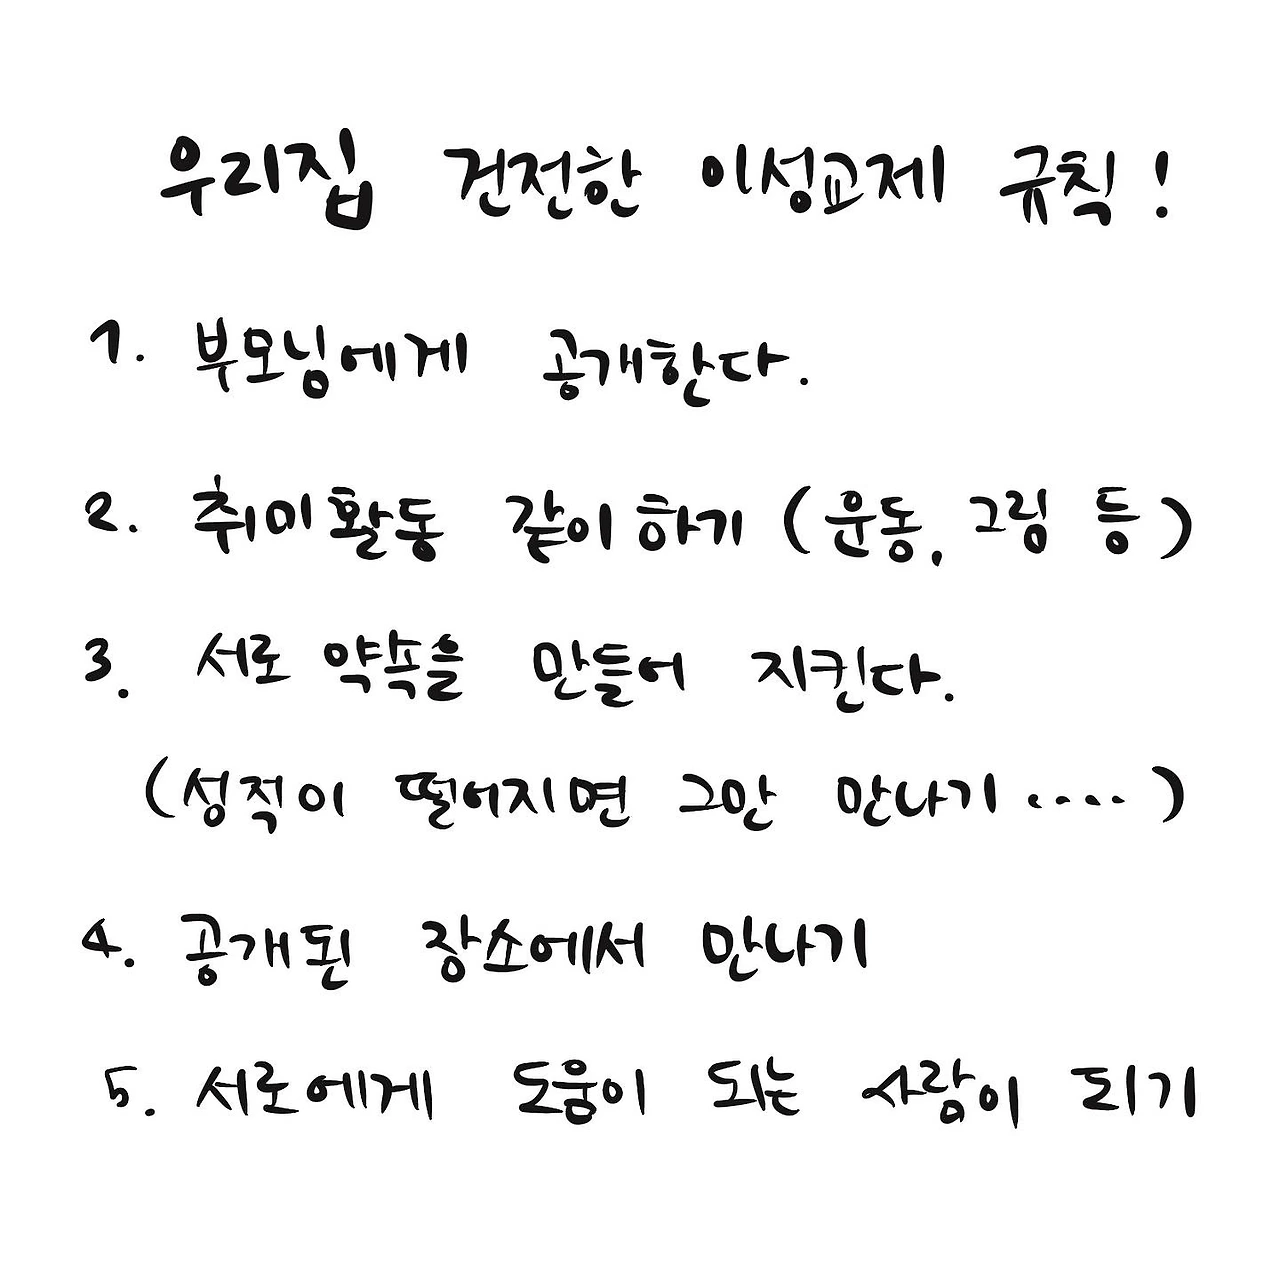 우리집 건전한 이성교제 규칙!
1. 부모님에게 공개한다.
2. 취미활동 같이하기 (운동, 그림 등)
3. 서로 약속을 만들어 지킨다.
(성적이 떨어지면 그만 만나기 ....)
4. 공개된 장소에서 만나기
5. 서로에게 도움이 되는 사람이 되기